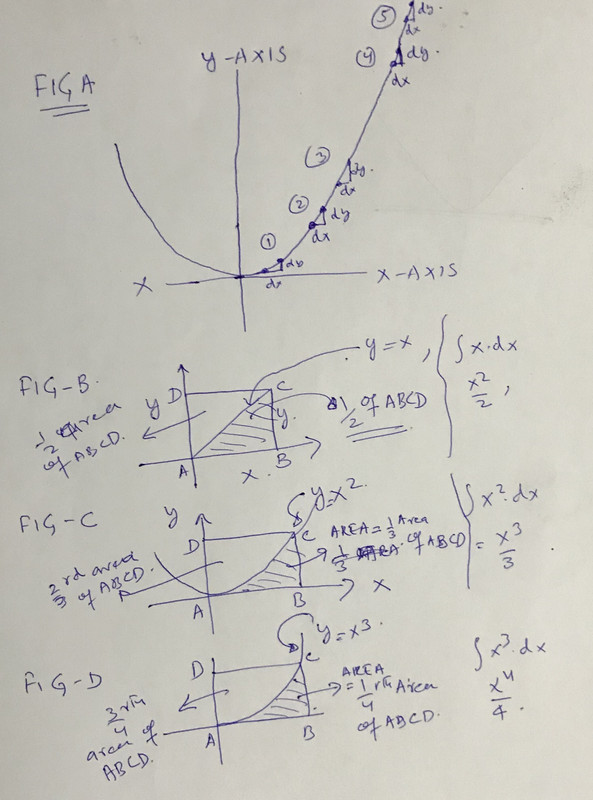 FIG A
y-AXIS
⑤ dy.
dx
④ dy.
dx
③ dy.
dx
② dy
dx
① dy
dx
X X-AXIS
FIG-B.
y = x, ∫ x·dx
x²/2,
1/2 Area
of ABCD.
y D C
y.
1/2 of ABCD
A x. B
FIG-C
y y=x². ∫ x²·dx
= x³/3
D C
AREA = 1/3 Area
1/3 of ABCD
2/3 rd area
of ABCD.
A B X
FIG-D
y=x³. ∫ x³·dx
x⁴/4.
D C
AREA
= 1/4 rth Area
of ABCD.
3/4 rth
area of
ABCD.
A B